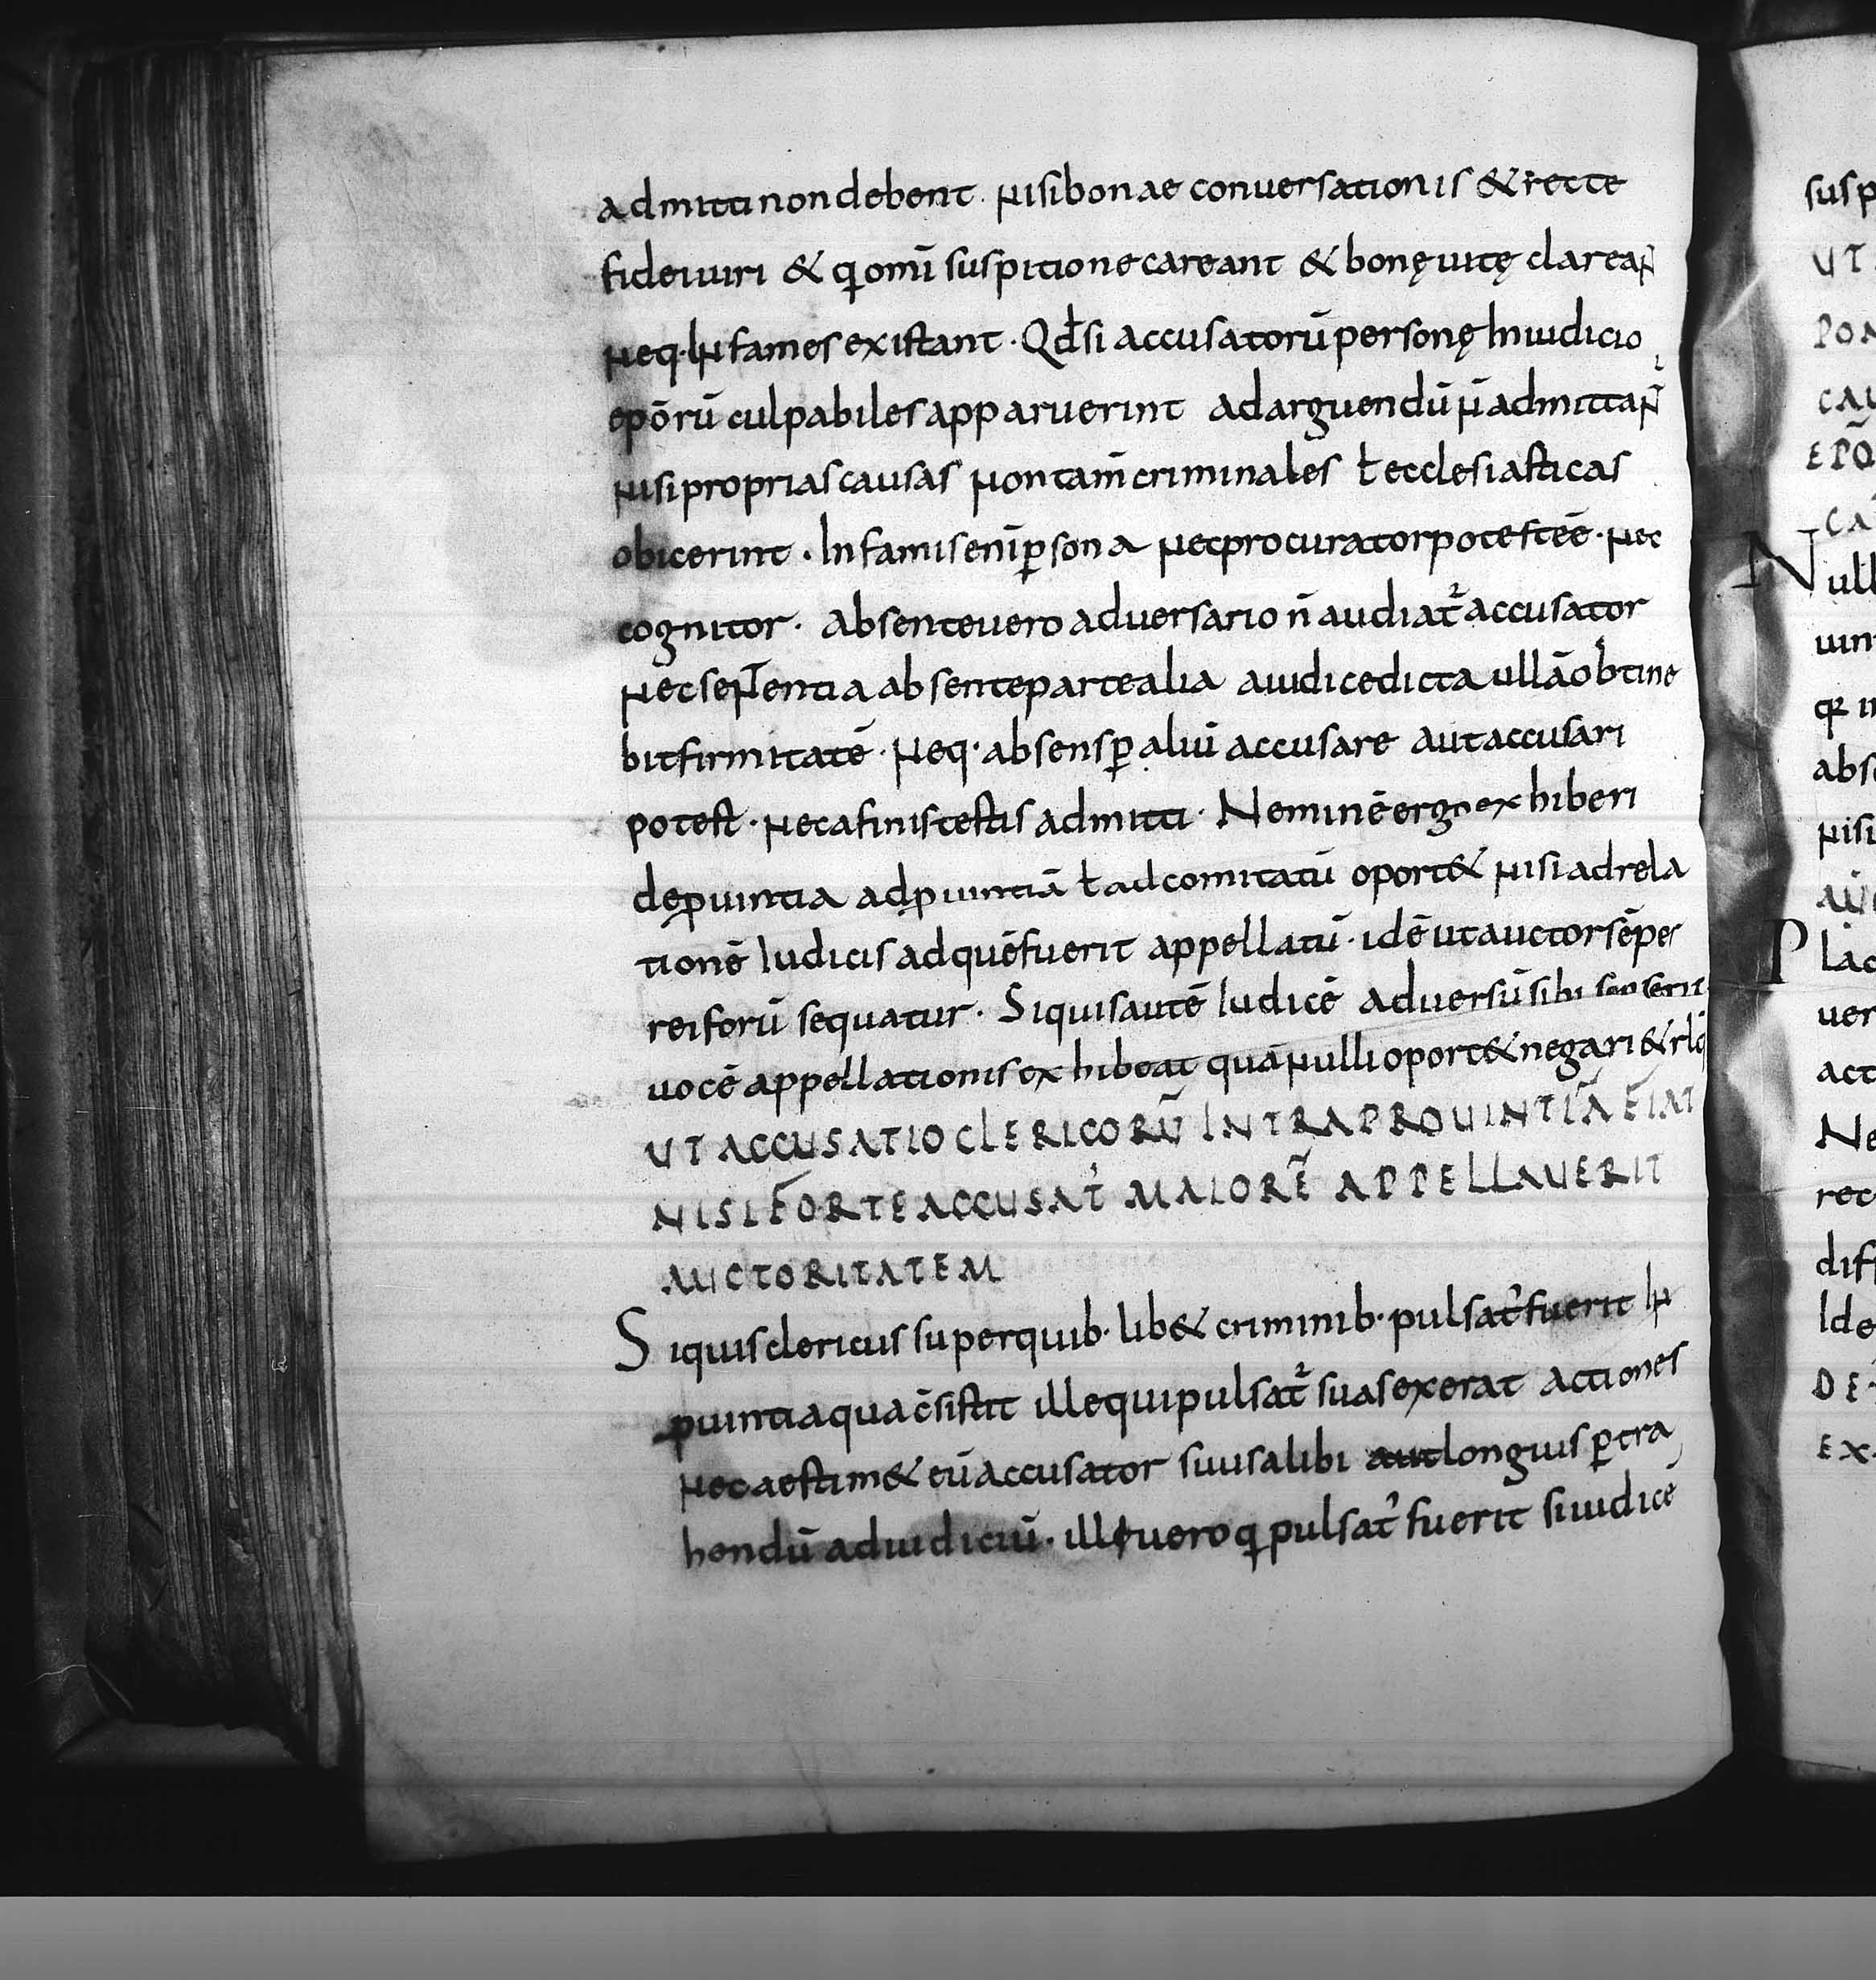 admitti non debent. nisi bonae conuersationis & recte
fidei uiri & q omī suspitione careant & bonę uitę clarean
neq· Infames existant· Qđ si accusatorū personę In iudicio
epōrū culpabiles apparuerint ad arguendū ñ admittan̄
nisi proprias causas non tam̄ criminales ł ecclesiasticas
obicerint. Infamis enī ꝑsona nec procurator potest eē· nec
cognitor. Absente uero aduersario ñ audiat᷑ accusator
nec sententia absente parte alia a iudice dicta ullā obtine
bit firmitatē· Neq· absens ꝑ aliū accusare aut accusari
potest· nec afinis testis admitti· Neminē ergo exhiberi
de ꝓuintia ad ꝓuintiā ł ad comitatū oport& nisi ad rela
tionē Iudicis ad quē fuerit appellatū· idē ut auctor sēper
rei forū sequatur· Si quis autē Iudicē aduersū sibi senserit
uocē appellationis exhibeat quā nulli oport& negari & rlq
UT ACCUSATIO CLERICORŪ INTRA PROUINTIĀ FIAT
NISI FORTE ACCUSAT᷑ MAIORĒ APPELLAUERIT
AUCTORITATEM
Si quis clericus super quib· lib& criminib· pulsat᷑ fuerit In
ꝓuintia qua c̄sistit ille qui pulsat᷑ suas exerat actiones
nec aestim& eū accusator suus alibi aut longius ꝑtra
hendū ad iudiciū· ille uero q pulsat᷑ fuerit si iudicē
susp
UT
PON
CAU
EPŌ
CA
Null
uin
q in
abs
nisi
Plac
uer
act
Ne
rec
diff
Ide
DE
EX